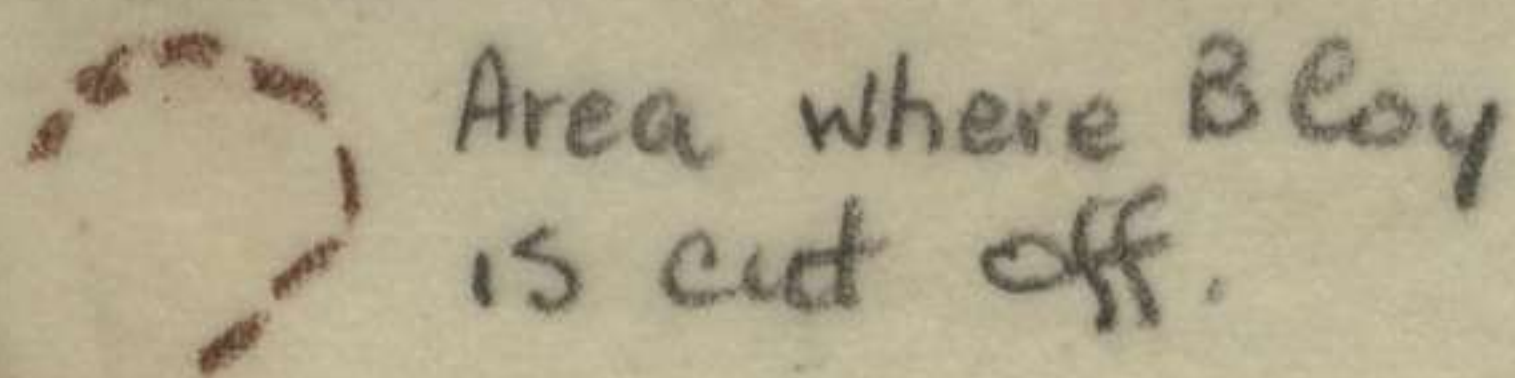 Area where B Coy
is cut off.